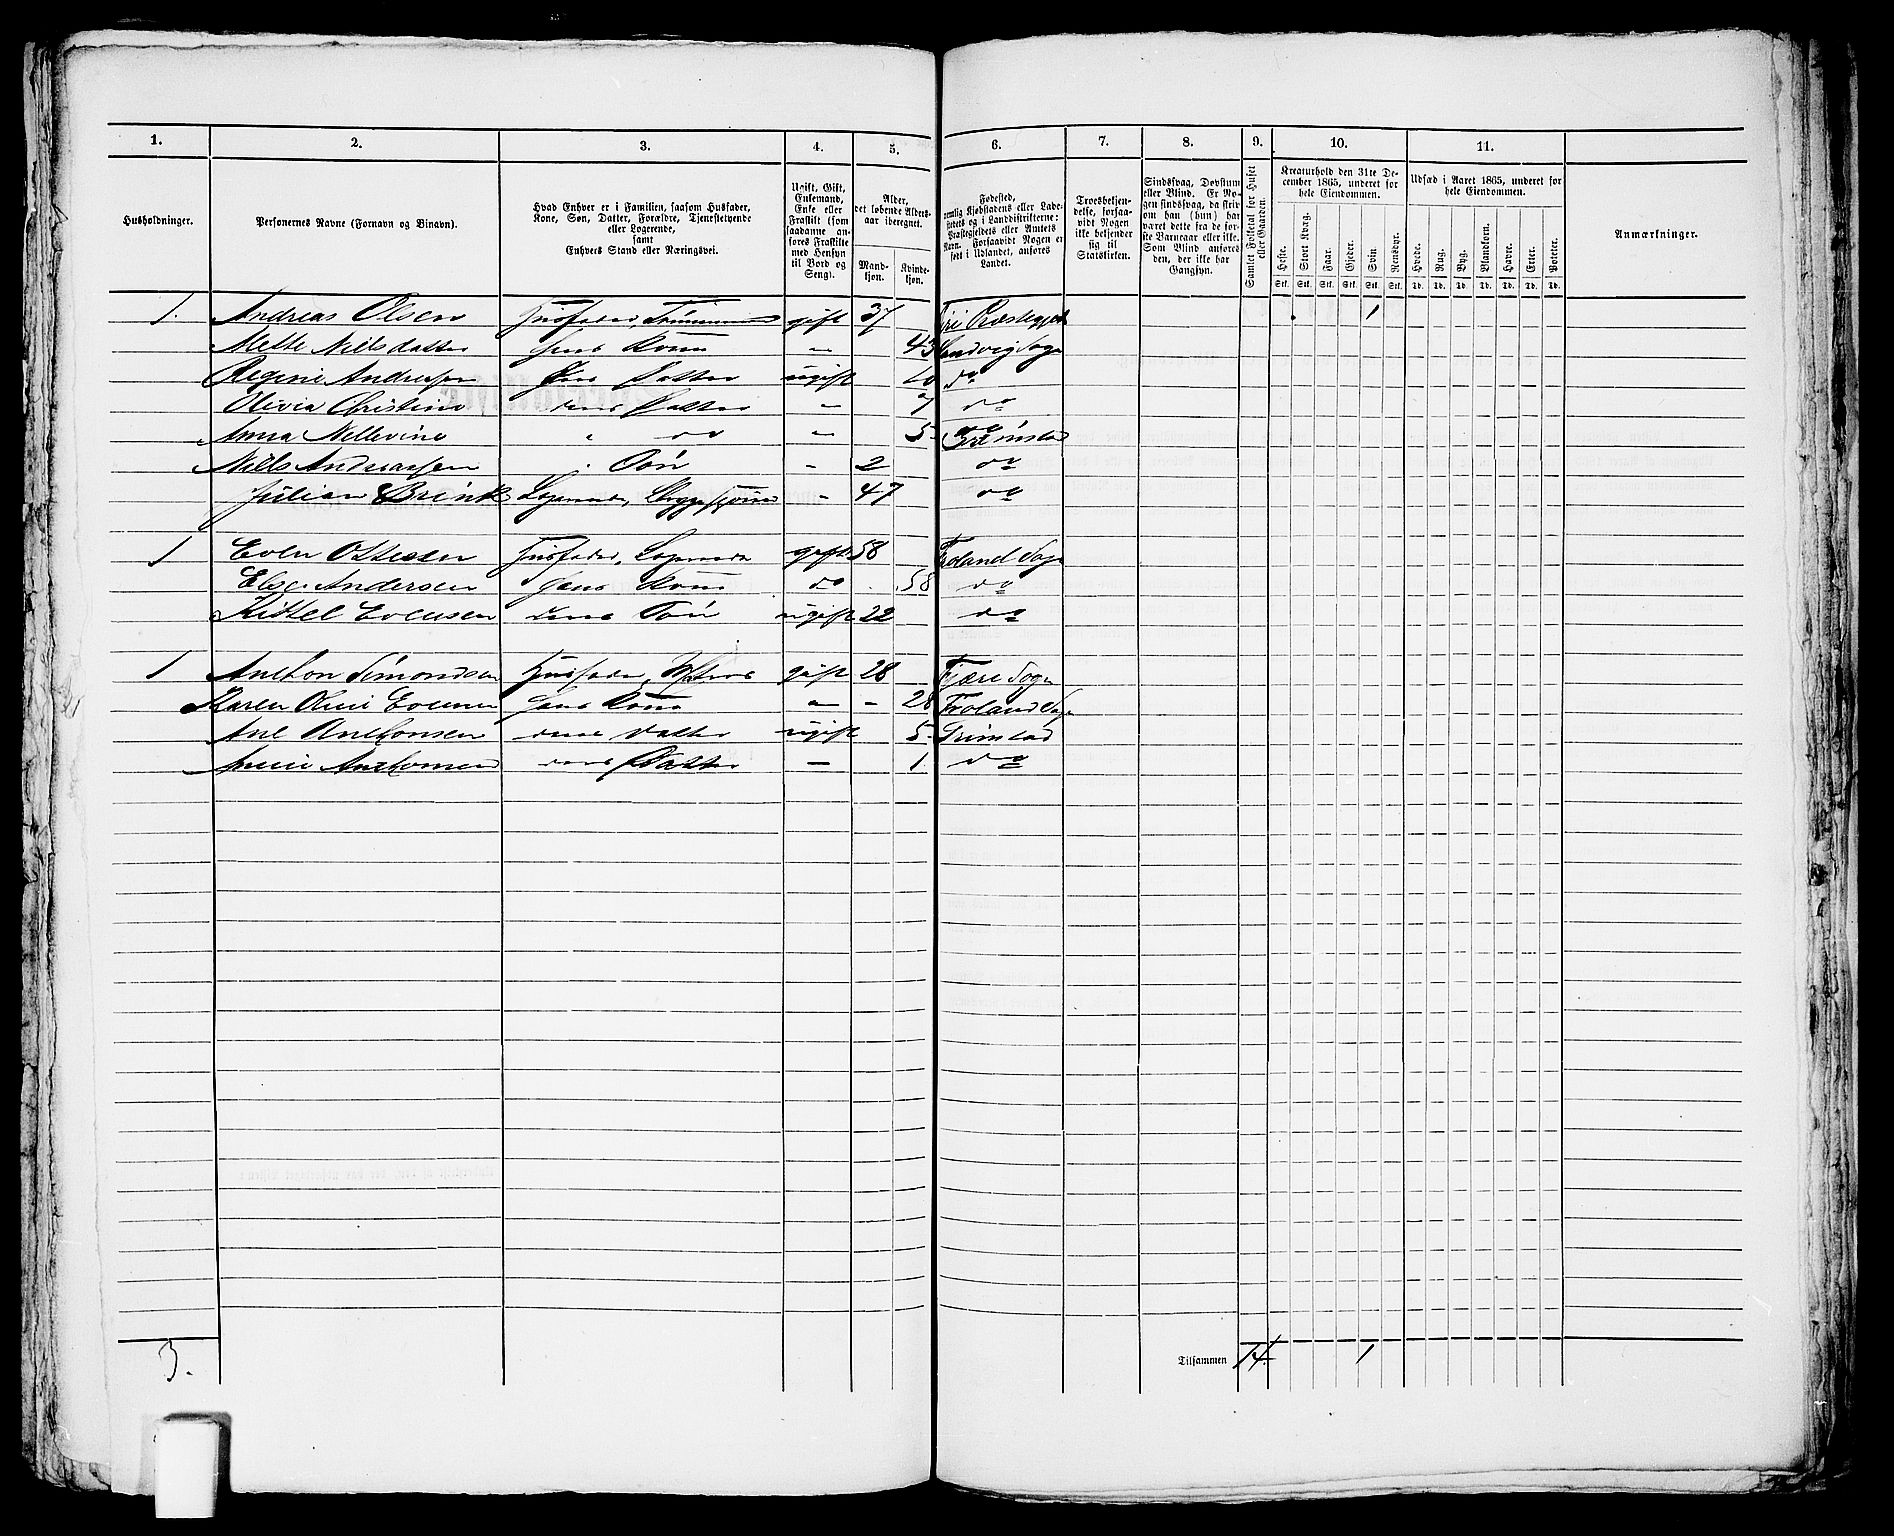 1. 2. 3. 4. 5. 6. 7. 8. 9. 10. 11.
Husholdninger.
Personernes Navne (Fornavn og Binavn).
Hvad Enhver er i Familien, saasom Husfader,
Kone, Søn, Datter, Forældre, Tjenestetyende
eller Logerende,
samt
Enhvers Stand eller Næringsvei.
Ugift, Gift,
Enkemand,
Enke eller
Fraskilt (som
saadanne an-
føres Fraskilte
med Hensyn
til Bord og
Seng).
Alder,
det løbende Alders-
aar iberegnet.
Mand-
kjøn.
Kvinde-
kjøn.
Fødested,
nemlig Kjøbstadens eller Lade-
stedets og i Landdistrikterne:
Præstegjeldets eller Amtets
Navn. Forsaavidt Nogen er
født i Udlandet, anføres
Landet.
Troesbekjen-
delse, forsaa-
vidt Nogen
ikke bekjender
sig til
Statskirken.
Sindssvag, Døvstum
eller Blind. Er No-
gen sindssvag, da skriv
om han (hun) har
været dette fra de før-
ste Barneaar eller ikke.
Som Blind anføres
den, der ikke har
Gangsyn.
Samlet Folketal for Huset
eller Gaarden.
Kreaturhold den 31te De-
cember 1865, underet for
hele Eiendommen.
Heste. Stort Kvæg. Faar. Gjeder. Svin. Rensdyr.
Stk. Stk. Stk. Stk. Stk. Stk.
Udsæd i Aaret 1865, underet for
hele Eiendommen.
Hvede. Rug. Byg. Blandkorn. Havre. Erter. Poteter.
Td. Td. Td. Td. Td. Td. Td.
Anmærkninger.
1. Andreas Olsen Husfader, gift 37 1
Mette Nilsdatter hans Kone " 43 Landvig Sogn
Regine Andreasen hans Datter ugift 10 do
Olivia Christine hans Datter " 7 do
Anna Nellevine " do " 5 Grimstad
Niels Andreassen " Søn " 2 do
Julian Brink Logerende, " 47 do
1 Even Ottesen Husfader, Logerende gift 58 Froland Sogn
Else Andersen hans Kone do 58 do
Kittel Evensen deres Søn ugift 22 do
1 Anthon Simondsen Husfader, gift 28 Fjære Sogn
Karen Oline Evensen hans Kone " 28 Froland Sogn
Ane Anthonsen deres Datter ugift 5 Grimstad
Anne Anthonsen deres Datter " 1 do
3. Tilsammen 14. 1